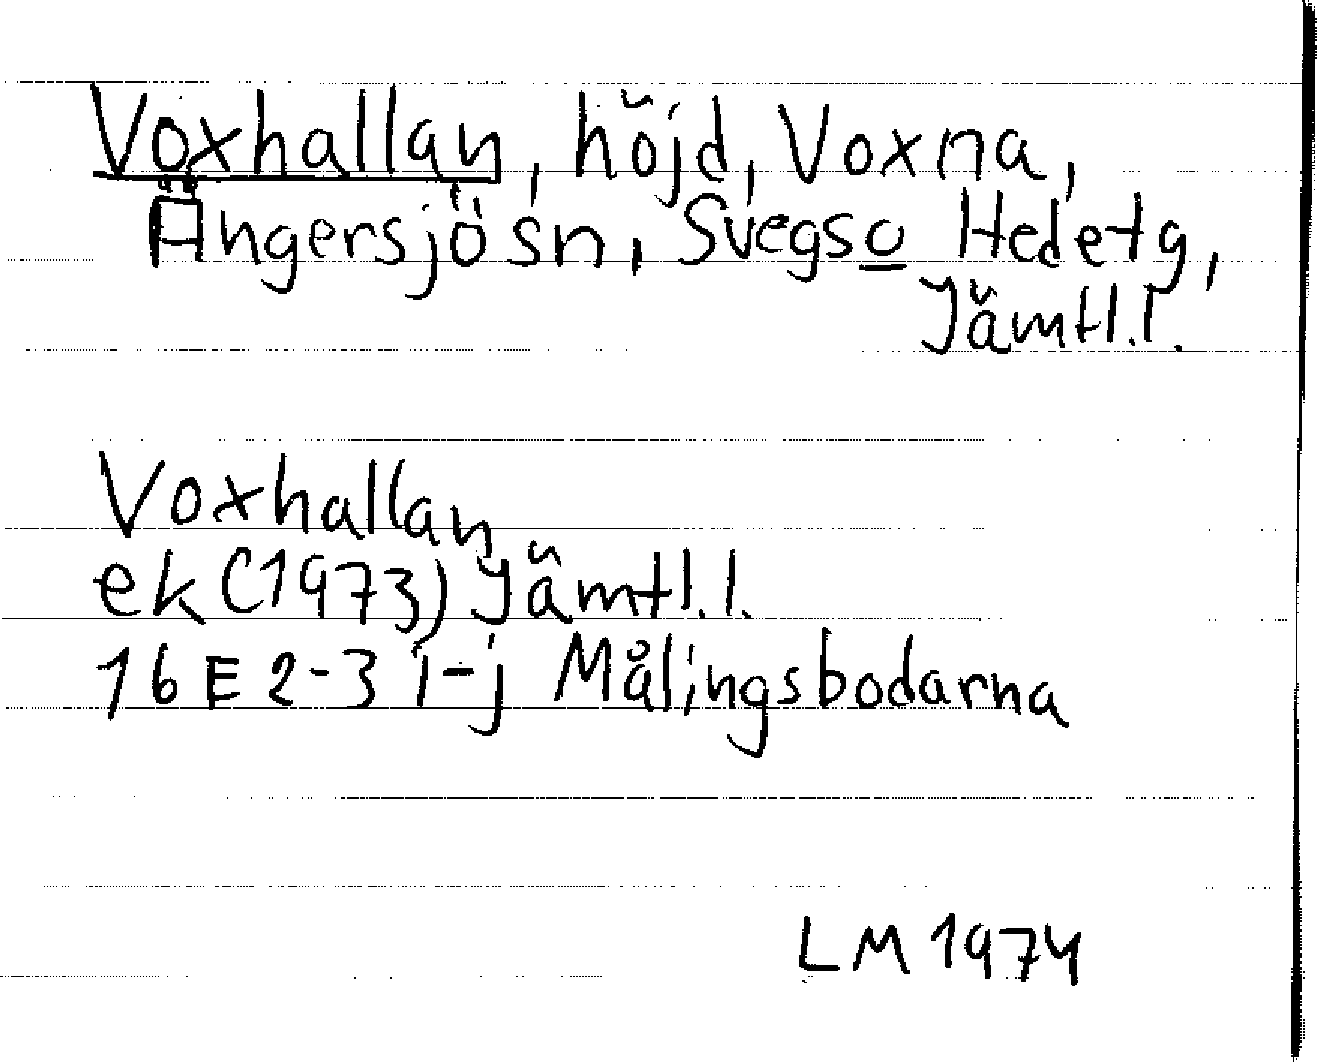 Voxhallan, höjd, Voxna,
Ängersjö sn, Svegs o Hede tg,
Jämtl.l.
Voxhallan
ek (1973) Jämtl.l.
16E 2-3 i-j Målingsbodarna
LM 1974